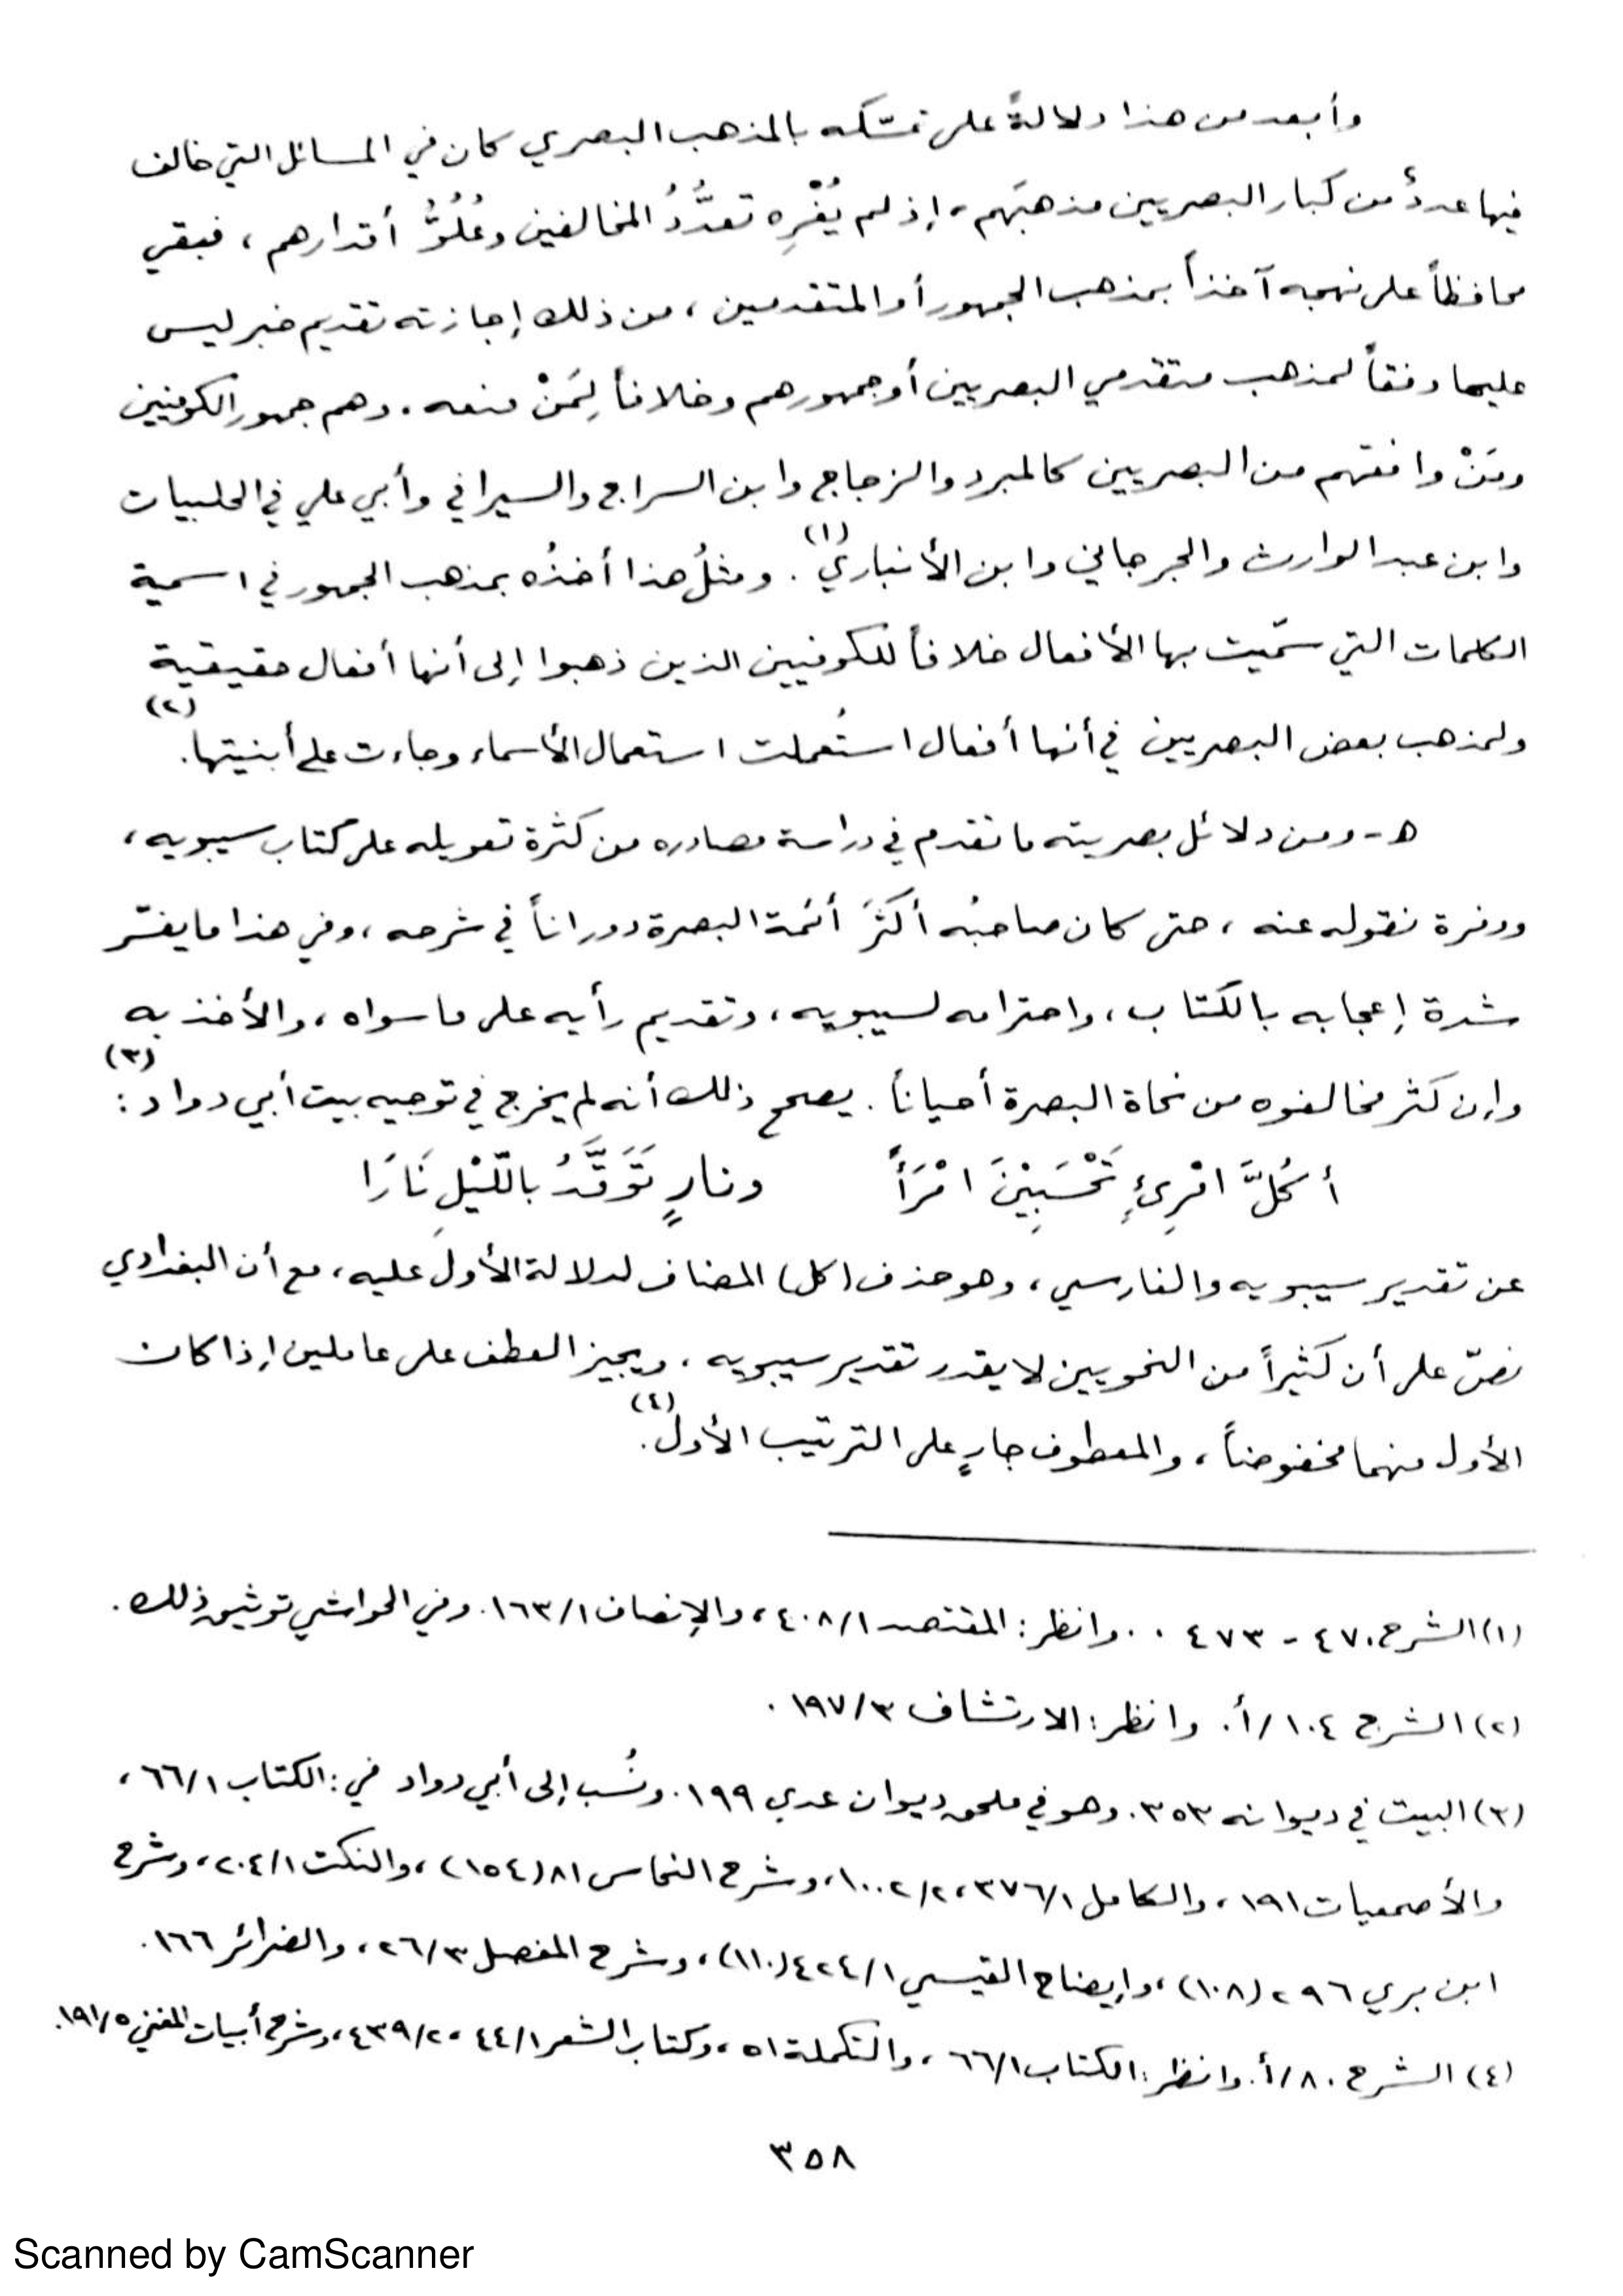 وأبعد من هذا دلالةً على تمسّكه بالمذهب البصري كان في المسائل التي خالف
فيها عددٌ من كبار البصريين مذهبَهم، إذ لم يُغْرِه تعدُّدُ المخالفين وعُلُوُّ أقدارهم، فبقي
محافظاً على نهجه آخذاً بمذهب الجمهور أو المتقدمين، من ذلك إجازته تقديم خبر ليس
عليها وفقاً لمذهب متقدمي البصريين أو جمهورهم وخلافاً لِمَنْ منعه. وهم جمهور الكوفيين
ومَنْ وافقهم من البصريين كالمبرد والزجاج وابن السراج والسيرافي وأبي علي في الحلبيات
وابن عبد الوارث والجرجاني وابن الأنباريّ(١). ومثلُ هذا أخذُه بمذهب الجمهور في اسمية
الكلمات التي سمّيت بها الأفعال خلافاً للكوفيين الذين ذهبوا إلى أنها أفعال حقيقية
ولمذهب بعض البصريين في أنها أفعال استُعملت استعمال الأسماء وجاءت على أبنيتها(٢).
هـ - ومن دلائل بصريته ما تقدم في دراسة مصادره من كثرة تعويله على كتاب سيبويه،
ووفرة نقوله عنه، حتى كان صاحبُه أكثرَ أئمة البصرة دوراناً في شرحه، وفي هذا ما يفسّر
شدة إعجابه بالكتاب، واحترامه لسيبويه، وتقديم رأيه على ما سواه، والأخذ به
وإن كثر مخالفوه من نحاة البصرة أحياناً. يصحح ذلك أنه لم يخرج في توجيه بيت أبي دواد(٣):
أكُلَّ امْرِئٍ تَحْسَبِيْنَ امْرَأً ونارٍ تَوَقَّدُ باللّيْلِ نَارَا
عن تقدير سيبويه والفارسي، وهو حذف (كل) المضاف لدلالة الأول عليه، مع أن البغدادي
نصّ على أن كثيراً من النحويين لا يقدر تقدير سيبويه، ويجيز العطف على عاملين إذا كان
الأول منهما مخفوضاً، والمعطوف جارٍ على الترتيب الأول(٤).
(١) الشرح ٤٧٠ - ٤٧٣ . . وانظر: المقتصد ٤٠٨/١، والإنصاف ١٦٣/١. وفي الحواشي توثيق ذلك.
(٢) الشرح ١٠٤/أ. وانظر: الارتشاف ١٩٧/٣.
(٣) البيت في ديوانه ٣٥٣. وهو في ملحق ديوان عدي ١٩٩. ونُسب إلى أبي دواد في: الكتاب ٦٦/١،
والأصمعيات ١٩١، والكامل ٣٧٦/١، ١٠٠٢/٢، وشرح النحاس ٨١ (١٥٤)، والنكت ٢٠٤/١، وشرح
ابن بري ٢٩٦ (١٠٨)، وإيضاح القيسي ٤٢٤/١ (١١٠)، وشرح المفصل ٢٦/٣، والضرائر ١٦٦.
(٤) الشرح ٨٠/أ. وانظر: الكتاب ٦٦/١، والتكملة ٥١، وكتاب الشعر ٤٤/١، ٤٣٩/٢، وشرح أبيات المغني ١٩١/٥.
٣٥٨
Scanned by CamScanner